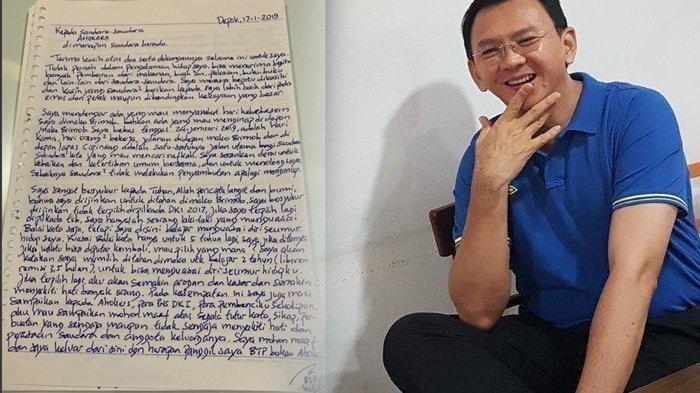 Depok, 17-1-2019
Kepada Saudara-saudara
AHOKERS
dimanapun saudara berada.
Terima kasih atas doa serta dukungannya selama ini untuk saya.
Tidak pernah dalam pengalaman hidup saya, bisa menerima begitu
banyak pemberian dari makanan, buah-an, pakaian, buku-buku
dan lain-lain dari saudara-saudara. Saya merasa begitu dikasihi
dan kasih yang saudara² berikan kepada saya lebih baik daripada
emas dan perak maupun dibandingkan kekayaan yang besar.
Saya mendengar ada yang mau menyambut hari kebebasan
saya dimako Brimob. bahkan ada yang mau menginap di depan
Mako Brimob. Saya bebas tanggal 24-januari 2019, adalah hari
kamis, hari orang² bekerja, jalanan didepan mako Brimob dan di
depan lapas Cipinang adalah satu-satunya jalan utama bagi saudara
saudara kita yang mau mencari nafkah. Saya sarankan demi untuk
kebaikan dan ketertiban umum bersama, dan untuk menolong saya,
sebaiknya saudara² tidak melakukan penyambutan apalagi menginap.
Saya sangat bersyukur kepada Tuhan, Allah pencipta langit dan bumi,
bahwa saya diijinkan untuk ditahan dimako Brimob. Saya bersyukur
diijinkan tidak terpilih dipilkada DKI 2017, jika saya terpilih lagi
dipilkada tsb, saya hanyalah seorang laki-laki yang menguasai
Balai kota saja, tetapi saya disini belajar menguasai diri seumur
hidup saya. Kuasai Balai kota hanya untuk 5 tahun lagi, saya jika ditanya
jika waktu bisa diputar kembali, mau pilih yang mana? Saya akan
katakan saya memilih ditahan dimako utk belajar 2 tahun (liburan
remisi 3,5 bulan), untuk bisa menguasai diri seumur hidupku.
Jika terpilih lagi aku akan semakin arogan dan kasar dan semakin
menyakiti hati banyak orang. Pada kesempatan ini saya juga mau
sampaikan kepada Ahokers, para PNS DKI, para pembenciku sekalipun,
aku mau sampaikan mohon maaf atas segala tutur kata, sikap, per-
buatan yang sengaja maupun tidak sengaja menyakiti hati dan
perasaan saudara dan anggota keluarganya. Saya mohon maaf
dan saya keluar dari sini dengan harapan panggil saya BTP bukan Ahok.